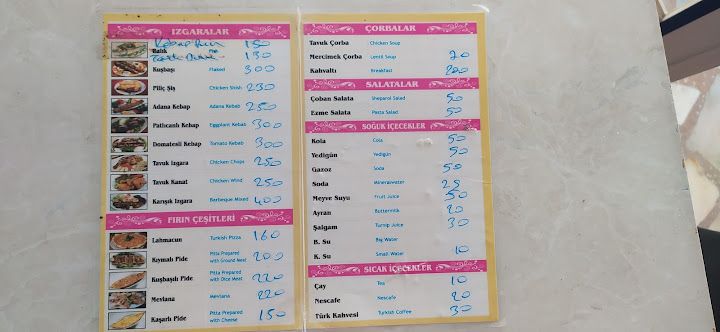 IZGARALAR
Kebap Dürüm 150
Balık Fish
Tavuk Dürüm 130
Kuşbaşı Flaked 300
Piliç Şiş Chicken Shish 230
Adana Kebap Adana Kebab 250
Patlıcanlı Kebap Eggplant Kebab 300
Domatesli Kebap Tomato Kebab 300
Tavuk Izgara Chicken Chops 250
Tavuk Kanat Chicken Wind 250
Karışık Izgara Barbeque Mixed 400
FIRIN ÇEŞİTLERİ
Lahmacun Turkish Pizza 160
Kıymalı Pide Pitta Prepared with Ground Meet 200
Kuşbaşılı Pide Pitta Prepared with Dice Meat 220
Mevlana Mevlana 220
Kaşarlı Pide Pitta Prepared with Cheese 150
ÇORBALAR
Tavuk Çorba Chicken Soup
Mercimek Çorba Lentil Soup 70
Kahvaltı Breakfast 200
SALATALAR
Çoban Salata Sheperol Salad 50
Ezme Salata Pasta Salad 50
SOĞUK İÇECEKLER
Kola Cola 50
Yedigün Yedigün 50
Gazoz Soda 50
Soda Mineralwater 25
Meyve Suyu Fruit Juice 50
Ayran Buttermilk 20
Şalgam Turnip Juice 30
B. Su Big Water
K. Su Small Water 10
SICAK İÇECEKLER
Çay Tea 10
Nescafe Nescafe 20
Türk Kahvesi Turkish Coffee 30